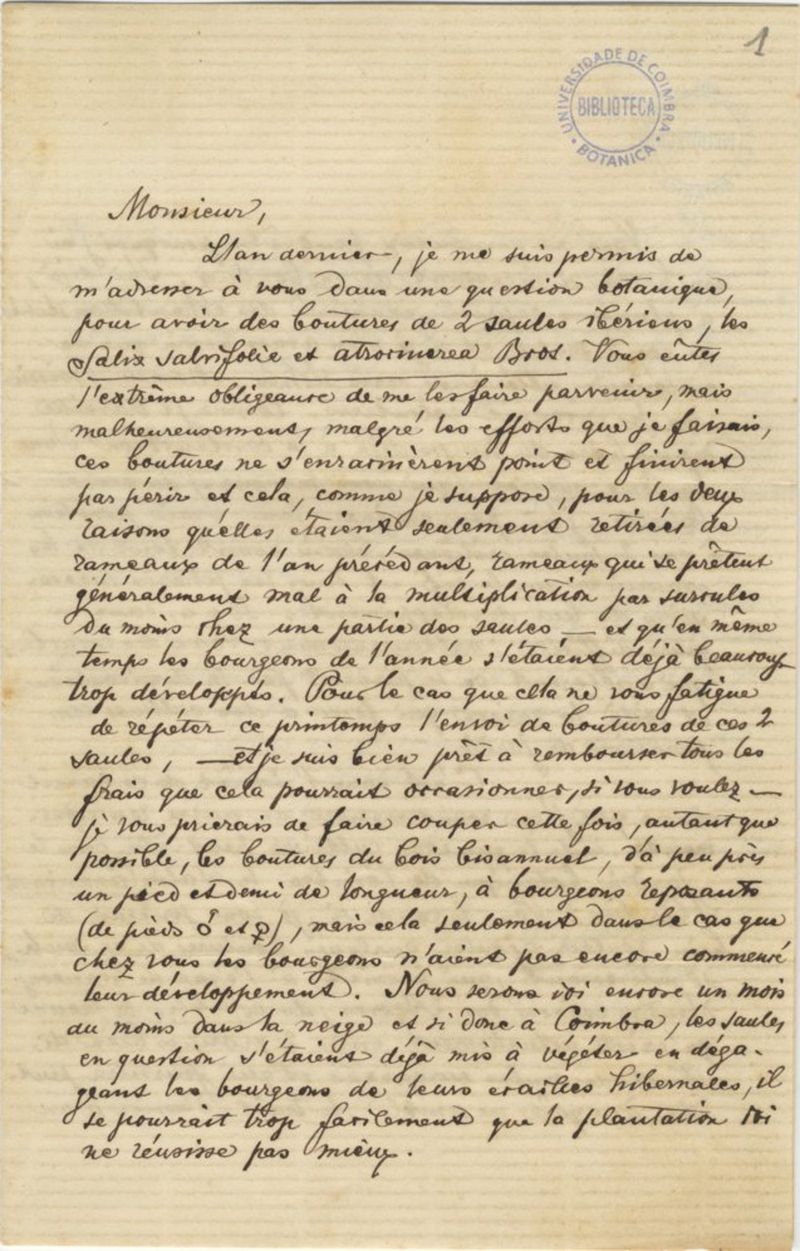 1
UNIVERSIDADE DE COIMBRA
BIBLIOTECA
BOTANICA
Monsieur,
L'an dernier, je me suis permis de
m'adresser à vous dans une question botanique,
pour avoir des boutures de 2 saules ibériens, les
Salix salvifolia et atrocinerea Brot. Vous eûtes
l'extrême obligeance de me les faire parvenir, mais
malheureusement, malgré les efforts que je faisais,
ces boutures ne s'enracinèrent point et finirent
par périr et cela, comme je suppose, pour les deux
raisons qu'elles étaient seulement retirées de
rameaux de l'an précédant, rameaux qui se prêtent
généralement mal à la multiplication par surcules
du moins chez une partie des saules — et qu'en même
temps les bourgeons de l'année s'étaient déjà beaucoup
trop développés. Pour le cas que cela ne vous fatigue
de répéter ce printemps l'envoi de boutures de ces 2
saules, — et je suis bien prêt à rembourser tous les
frais que cela pourrait occasionner, si vous voulez —
je vous prierais de faire couper cette fois, autant que
possible, les boutures du bois bisannuel, d'à peu près
un pied et demi de longueur, à bourgeons reposants
(de pieds ♂ et ♀), mais cela seulement dans le cas que
chez vous les bourgeons n'aient pas encore commencé
leur développement. Nous serons ici encore un mois
au moins dans la neige et si donc à Coimbra, les saules
en question s'étaient déjà mis à végéter en déga-
geant les bourgeons de leurs écailles hibernales, il
se pourrait trop facilement que la plantation ici
ne réusisse pas mieux.